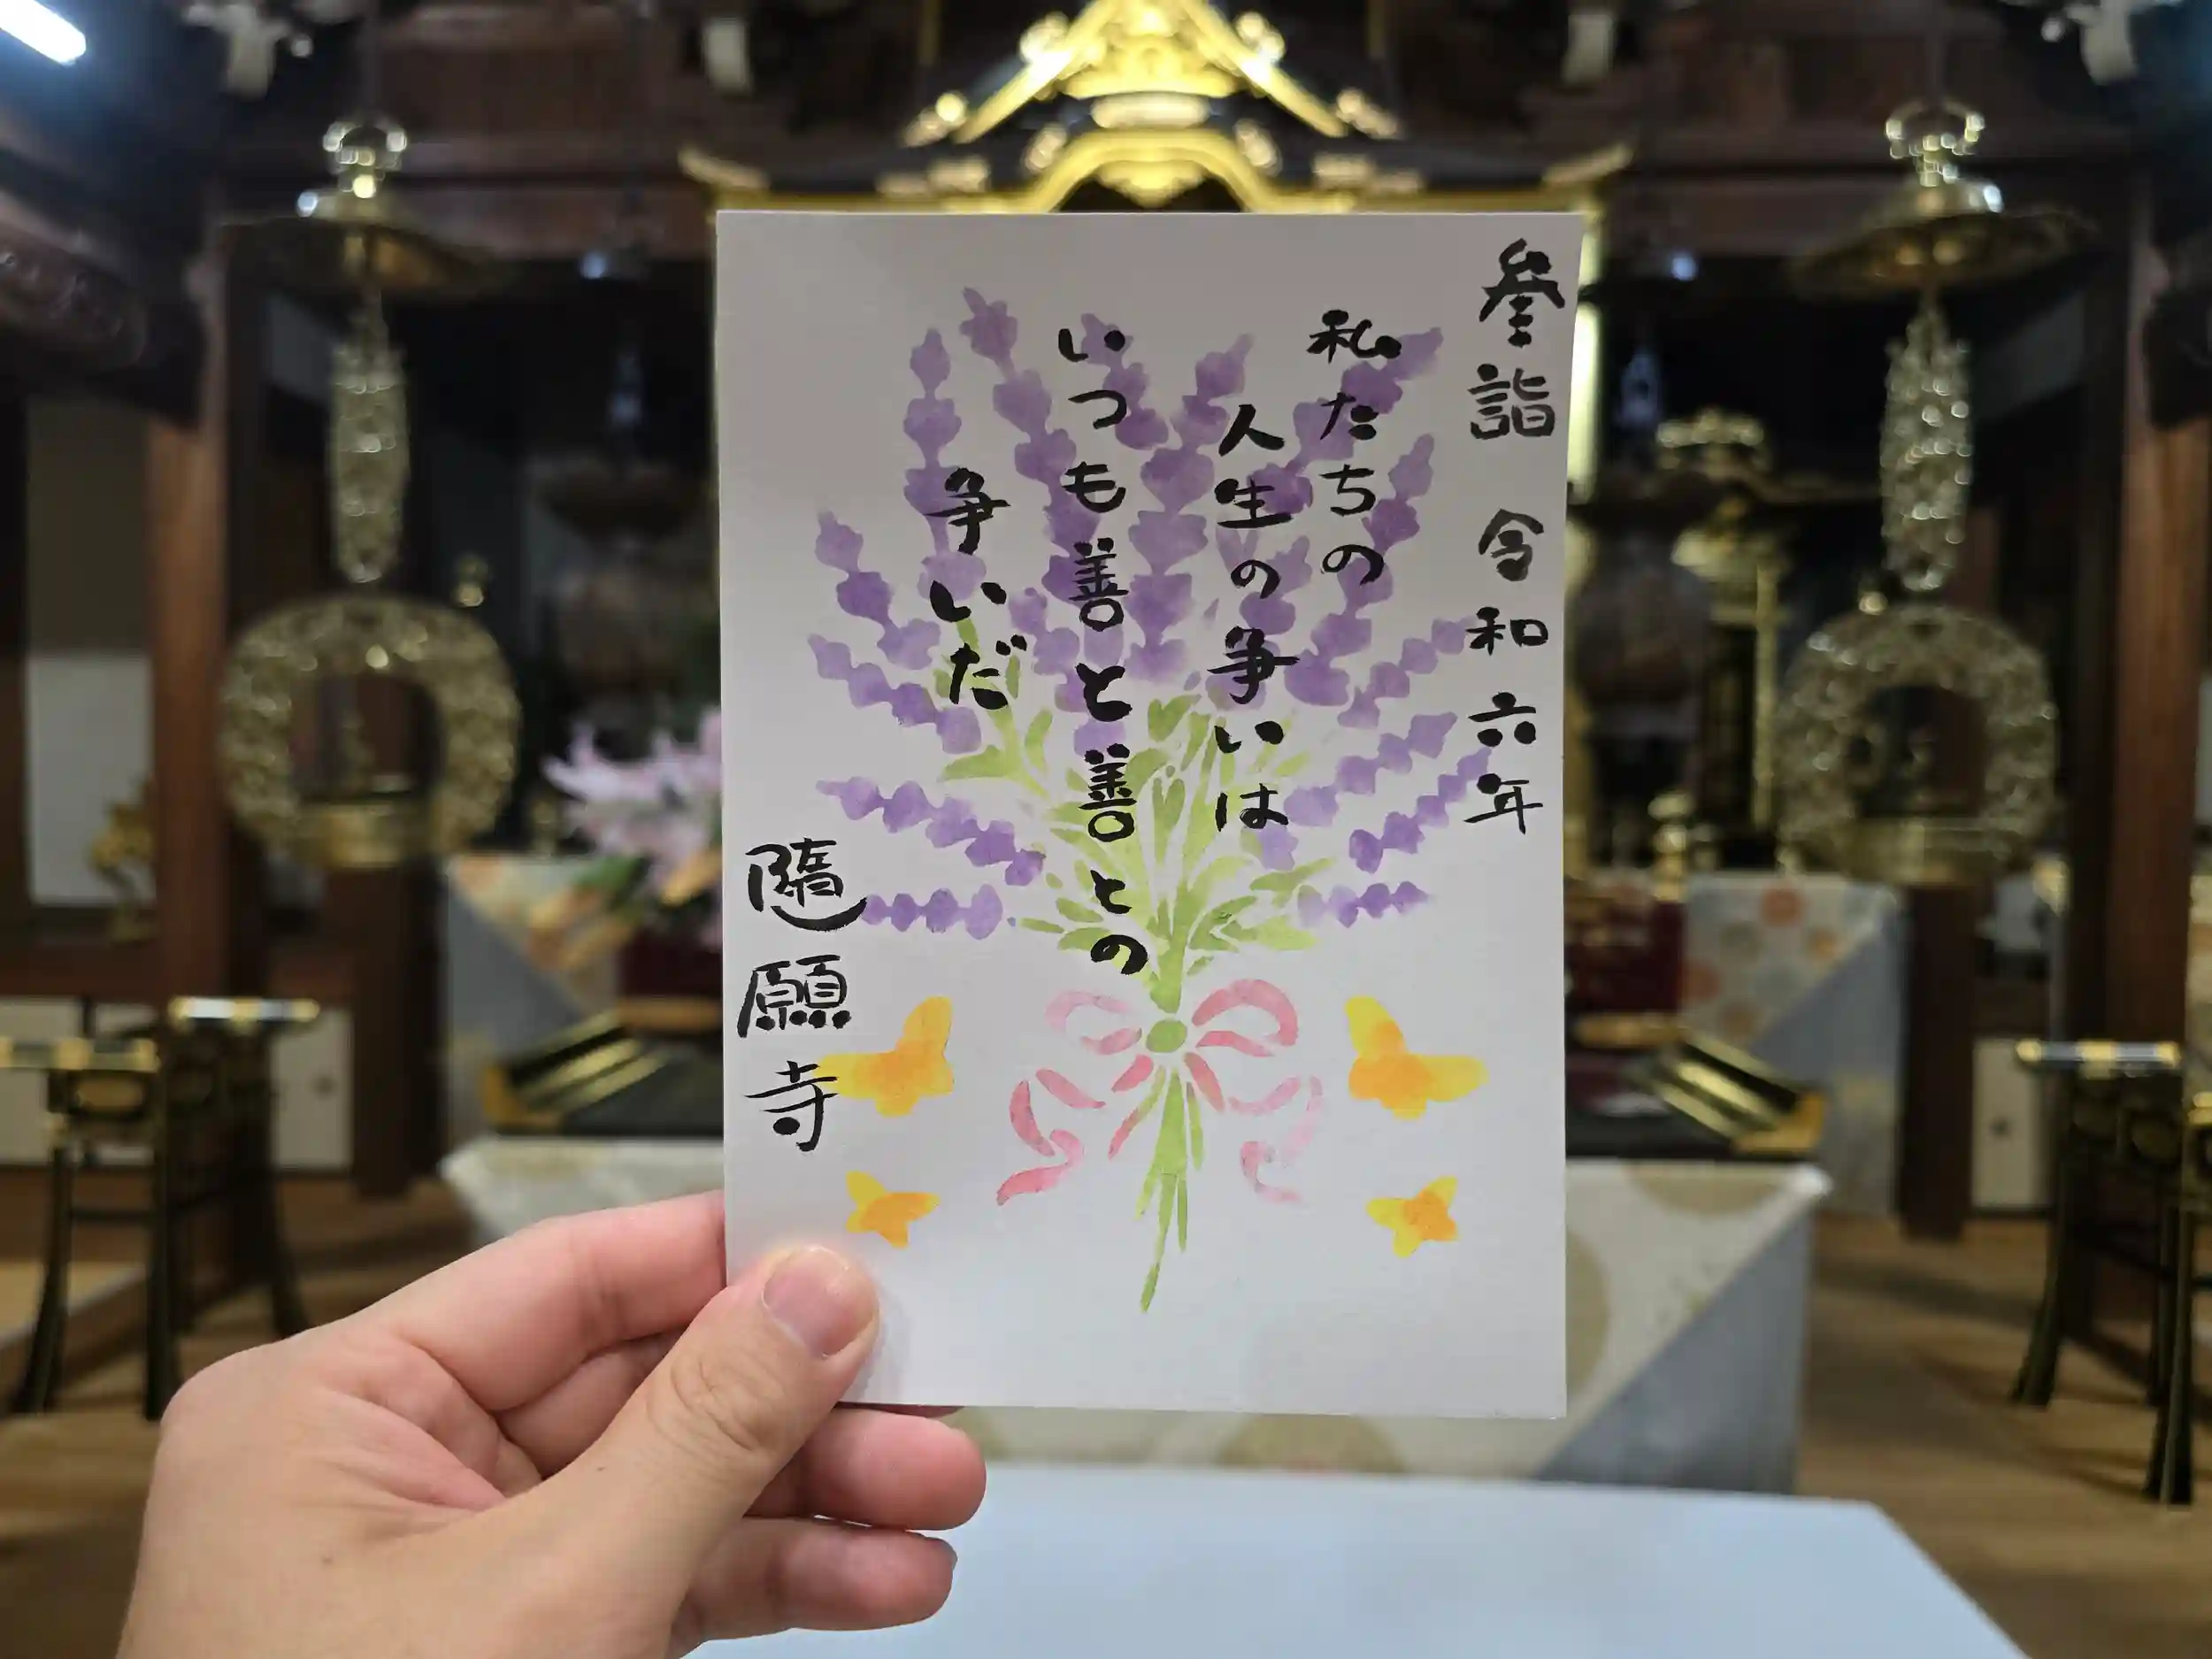 参詣 令和六年
私たちの
人生の争いは
いつも善と善との
争いだ
隨願寺